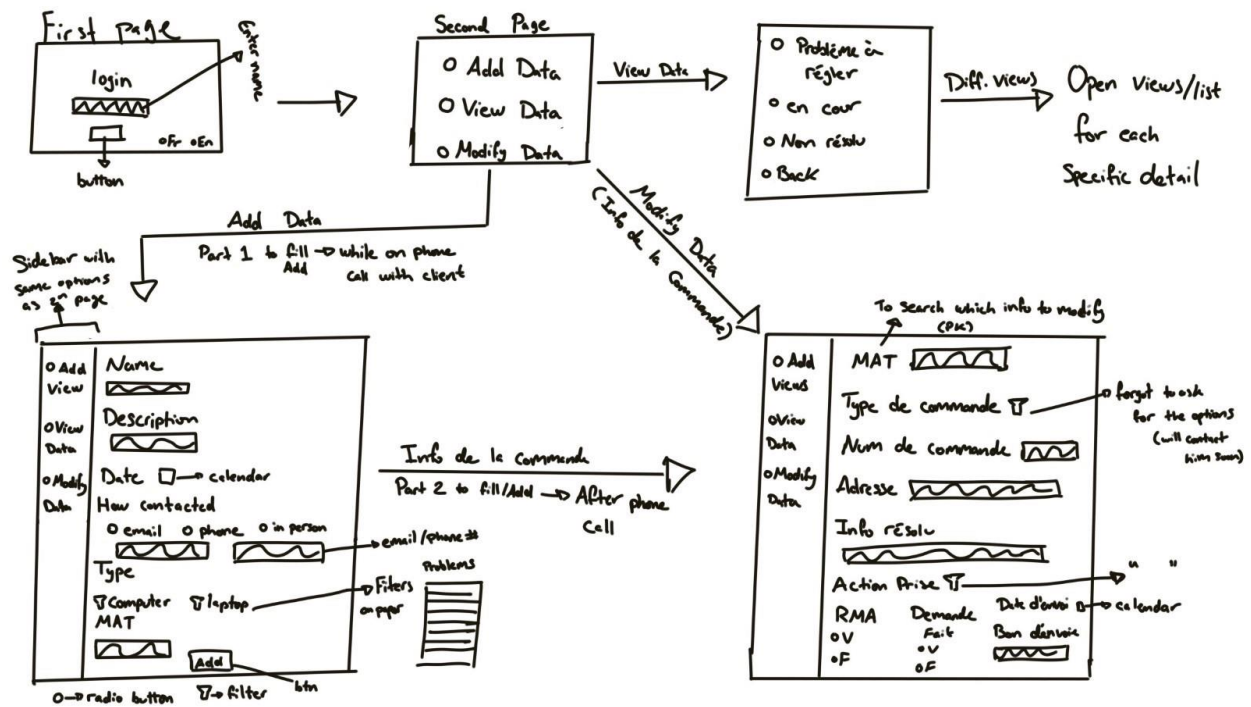 First page
login
Enter name
Fr
En
button
Second Page
Add Data
View Data
Modify Data
View Data
Problème à
régler
en cour
Non résolu
Back
Diff. views
Open views/list
for each
Specific detail
Add Data
Part 1 to fill → while on phone
Add
call with client
Modify Data
(Info de la Commande)
Sidebar with
same options
as 2nd page
Add
View
View
Data
Modify
Data
Name
Description
Date
calendar
How contacted
email
phone
in person
email/phone#
Type
Computer
laptop
Filters
on paper
Problems
MAT
Add
btn
O → radio button
→ filter
Info de la commande
Part 2 to fill/Add → After phone
call
To search which info to modify
(PK)
Add
Views
View
Data
Modify
Data
MAT
Type de commande
forgot to ask
for the options
(will contact
him soon)
Num de commande
Adresse
Info résolu
Action Prise
" "
RMA
V
F
Demande
Fait
V
F
Date d'envoi
calendar
Bon d'envoie